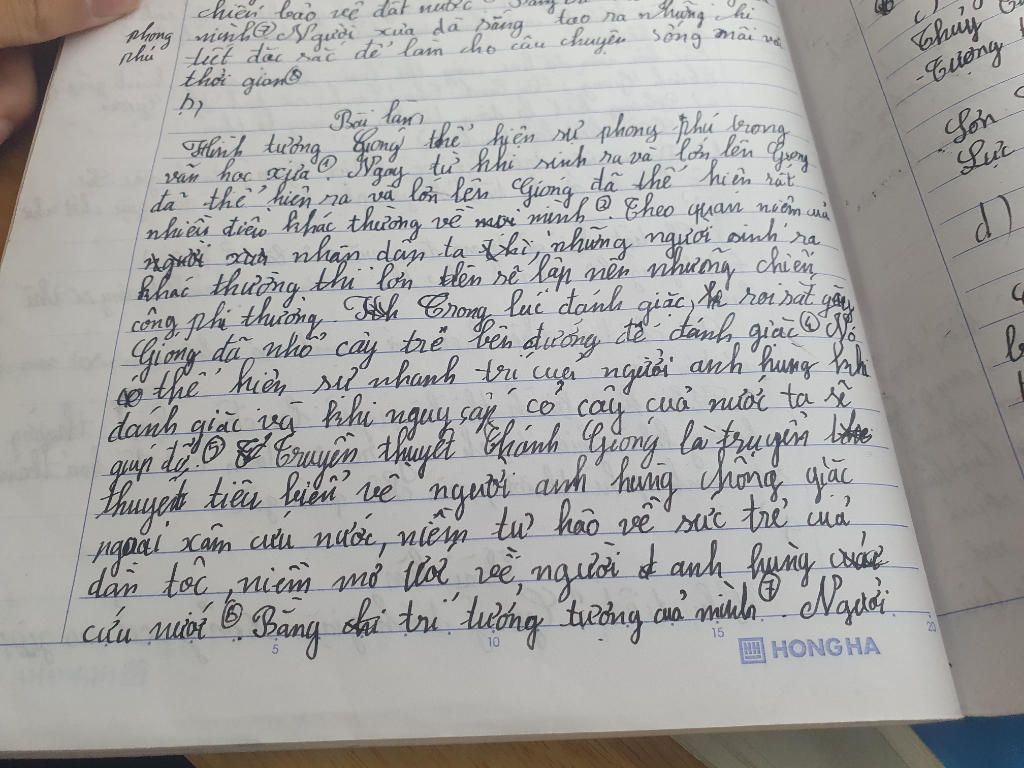 chiến bảo vệ đất nước
phong minh ② Người xưa đã sáng tạo ra những chi
phú tiết đặc sắc để làm cho câu chuyện sống mãi với
thời gian ③
b,
Bài làm
Hình tượng Gióng thể hiện sự phong phú trong
văn học xưa ①. Ngay từ khi sinh ra và lớn lên Gióng
đã thể hiện ra và lớn lên Gióng đã thể hiện rất
nhiều điều khác thường về mình ②. Theo quan niệm của
nhân dân ta thì, những người sinh ra
khác thường thì lớn lên sẽ lập nên nhưỡng chiến
công phi thường. Trong lúc đánh giặc, roi sắt gãy
Gióng đã nhổ cây trê bên đường để đánh giặc ④ Nó
thể hiện sự nhanh trí của người anh hùng khi
đánh giặc và khi nguy cấp cỏ cây của nước ta sẽ
giúp đỡ. ⑤ Truyền thuyết Thánh Gióng là truyện
thuyết tiêu biểu về người anh hùng chống giặc
ngoại xâm cứu nước, niềm tự hào về sức trẻ của
dân tộc, niềm mơ ước về, người anh hùng
cứu nước ⑥ Bằng trí tưởng tượng của mình ⑦. Người
5 10 15 20
HONG HA
Thủy
- Tượng
Sơn
Lực
d)